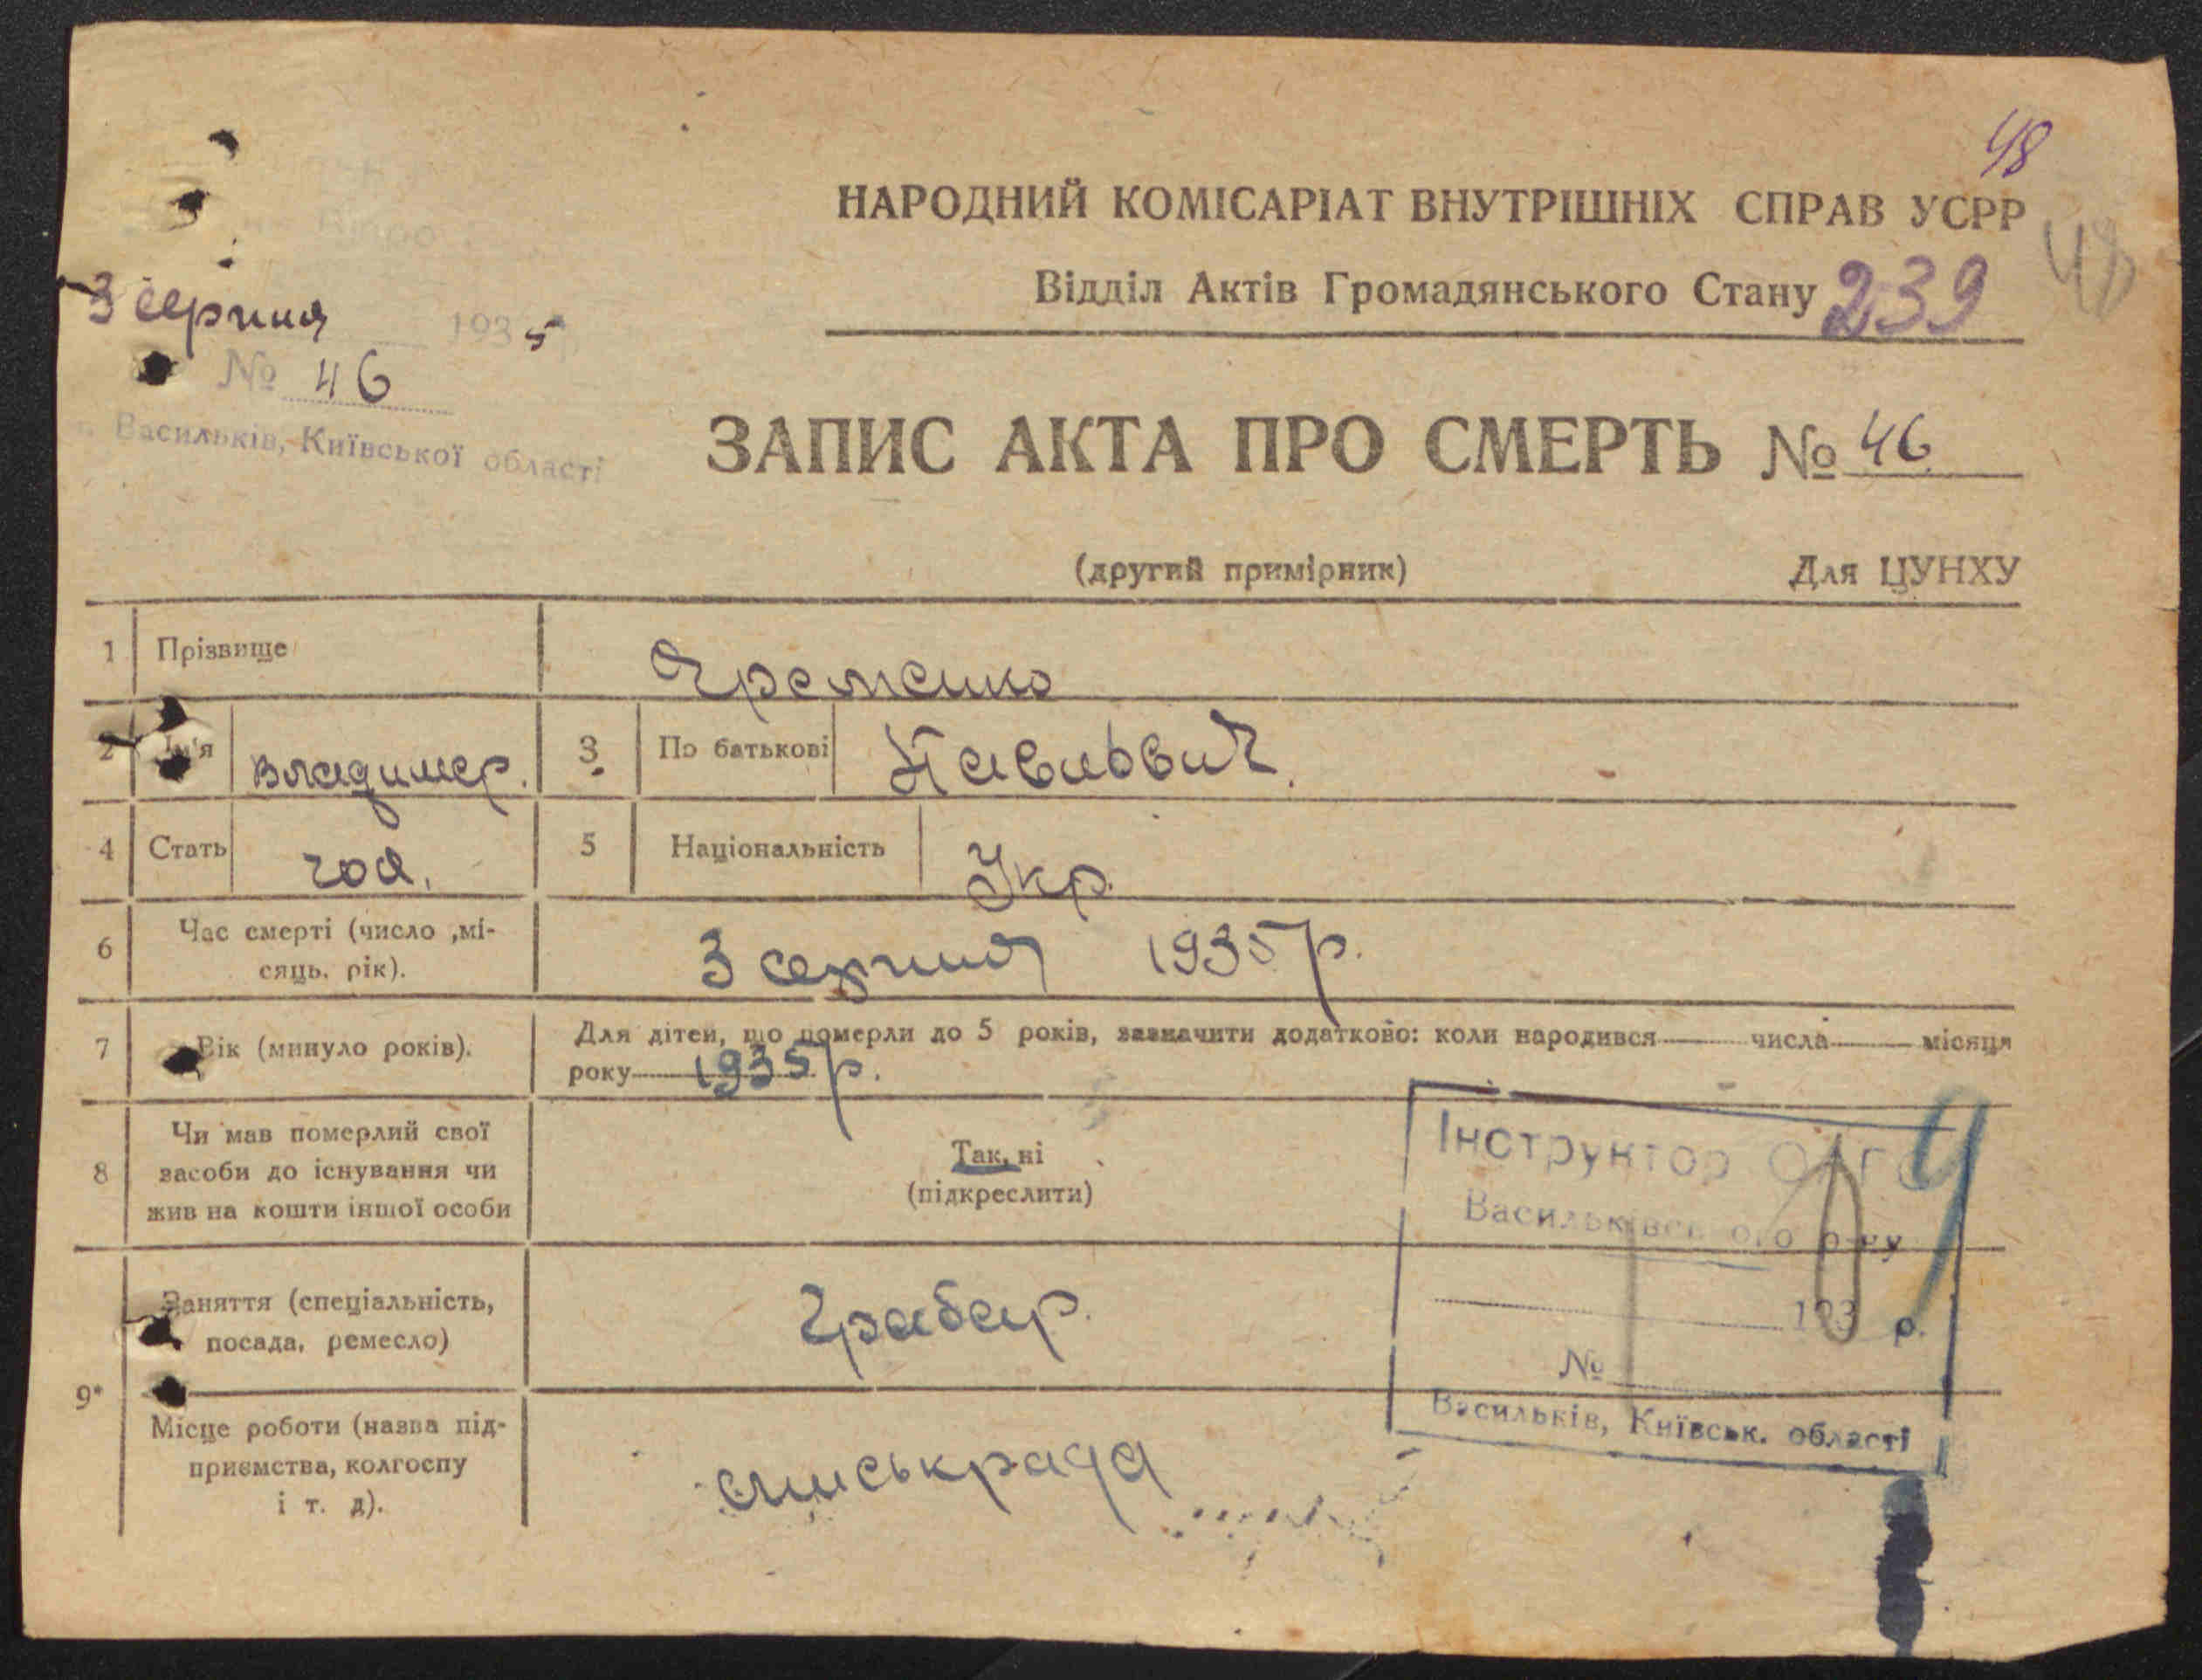 48
НАРОДНИЙ КОМІСАРІАТ ВНУТРІШНІХ СПРАВ УСРР
48
Відділ Актів Громадянського Стану 239
3 серпня 1935
№ 46
Васильків, Київської області
ЗАПИС АКТА ПРО СМЕРТЬ № 46
(другий примірник) Для ЦУНХУ
1 Прізвище Яременко
2 Ім'я Владимер. 3 По батькові Павльович.
4 Стать чол. 5 Національність Укр.
6 Час смерті (число ,мі-
сяць, рік).
3 серпня 1935 р.
7 Вік (минуло років).
Для дітей, що померли до 5 років, зазначити додатково: коли народився числа місяця
року 1935 р.
8 Чи мав померлий свої
засоби до існування чи
жив на кошти іншої особи
Так, ні
(підкреслити)
Інструктор ОАГС
Васильківського р-ну
193 р.
№
Васильків, Київськ. області
9*
Заняття (спеціальність,
посада, ремесло)
Грабар.
Місце роботи (назва під-
приємства, колгоспу
і т. д).
міськрада